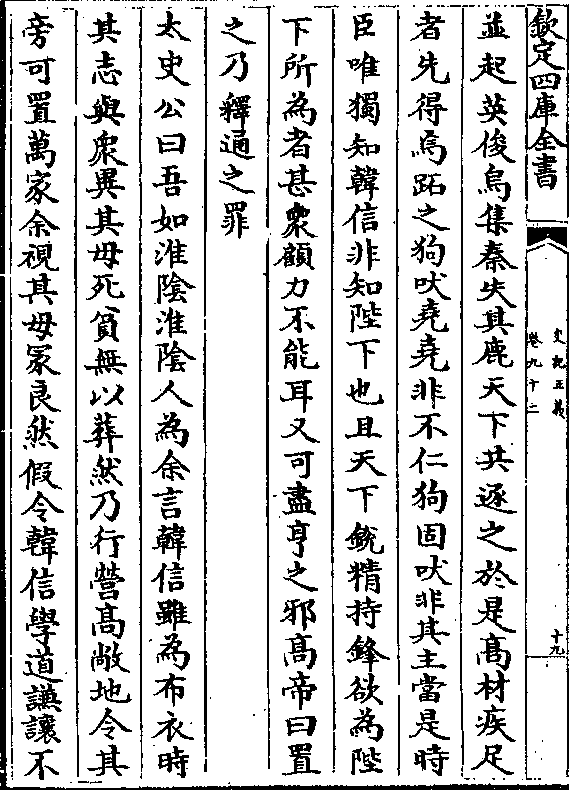 欽定四庫全書
史記正義
卷九十二
十九
並起英俊烏集秦失其鹿天下共逐之於是髙材疾足
者先得焉跖之狗吠堯堯非不仁狗固吠非其主當是時
臣唯獨知韓信非知陛下也且天下銳精持鋒欲為陛
下所為者甚衆顧力不能耳又可盡亨之邪髙帝曰置
之乃釋通之罪
太史公曰吾如淮陰淮陰人為余言韓信雖為布衣時
其志與衆異其母死貧無以葬然乃行營髙敞地令其
旁可置萬家余視其母冢良然假令韓信學道謙讓不